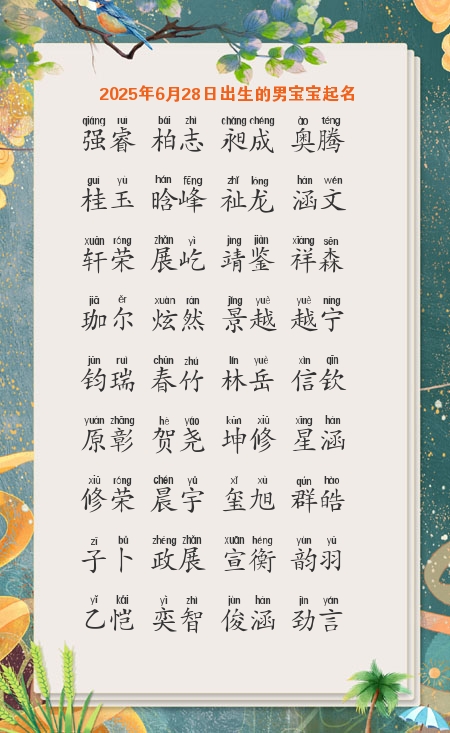 2025年6月28日出生的男宝宝起名
qiáng ruì bǎi zhì chǎng chéng ào téng
强睿 柏志 昶成 奥腾
guì yù hán fēng zhǐ lóng hán wén
桂玉 晗峰 祉龙 涵文
xuān róng zhǎn yì jìng jiàn xiáng sēn
轩荣 展屹 靖鉴 祥森
jiā ěr xuàn rán jǐng yuè yuè níng
珈尔 炫然 景越 越宁
jūn ruì chūn zhú lín yuè xìn qīn
钧瑞 春竹 林岳 信钦
yuán zhāng hè yáo kūn xiū xīng hán
原彰 贺尧 坤修 星涵
xiū róng chén yǔ xǐ xù qún hào
修荣 晨宇 玺旭 群皓
zǐ bǔ zhèng zhǎn xuān héng yùn yǔ
子卜 政展 宣衡 韵羽
yǐ kǎi yì zhì jùn hán jìn yán
乙恺 奕智 俊涵 劲言